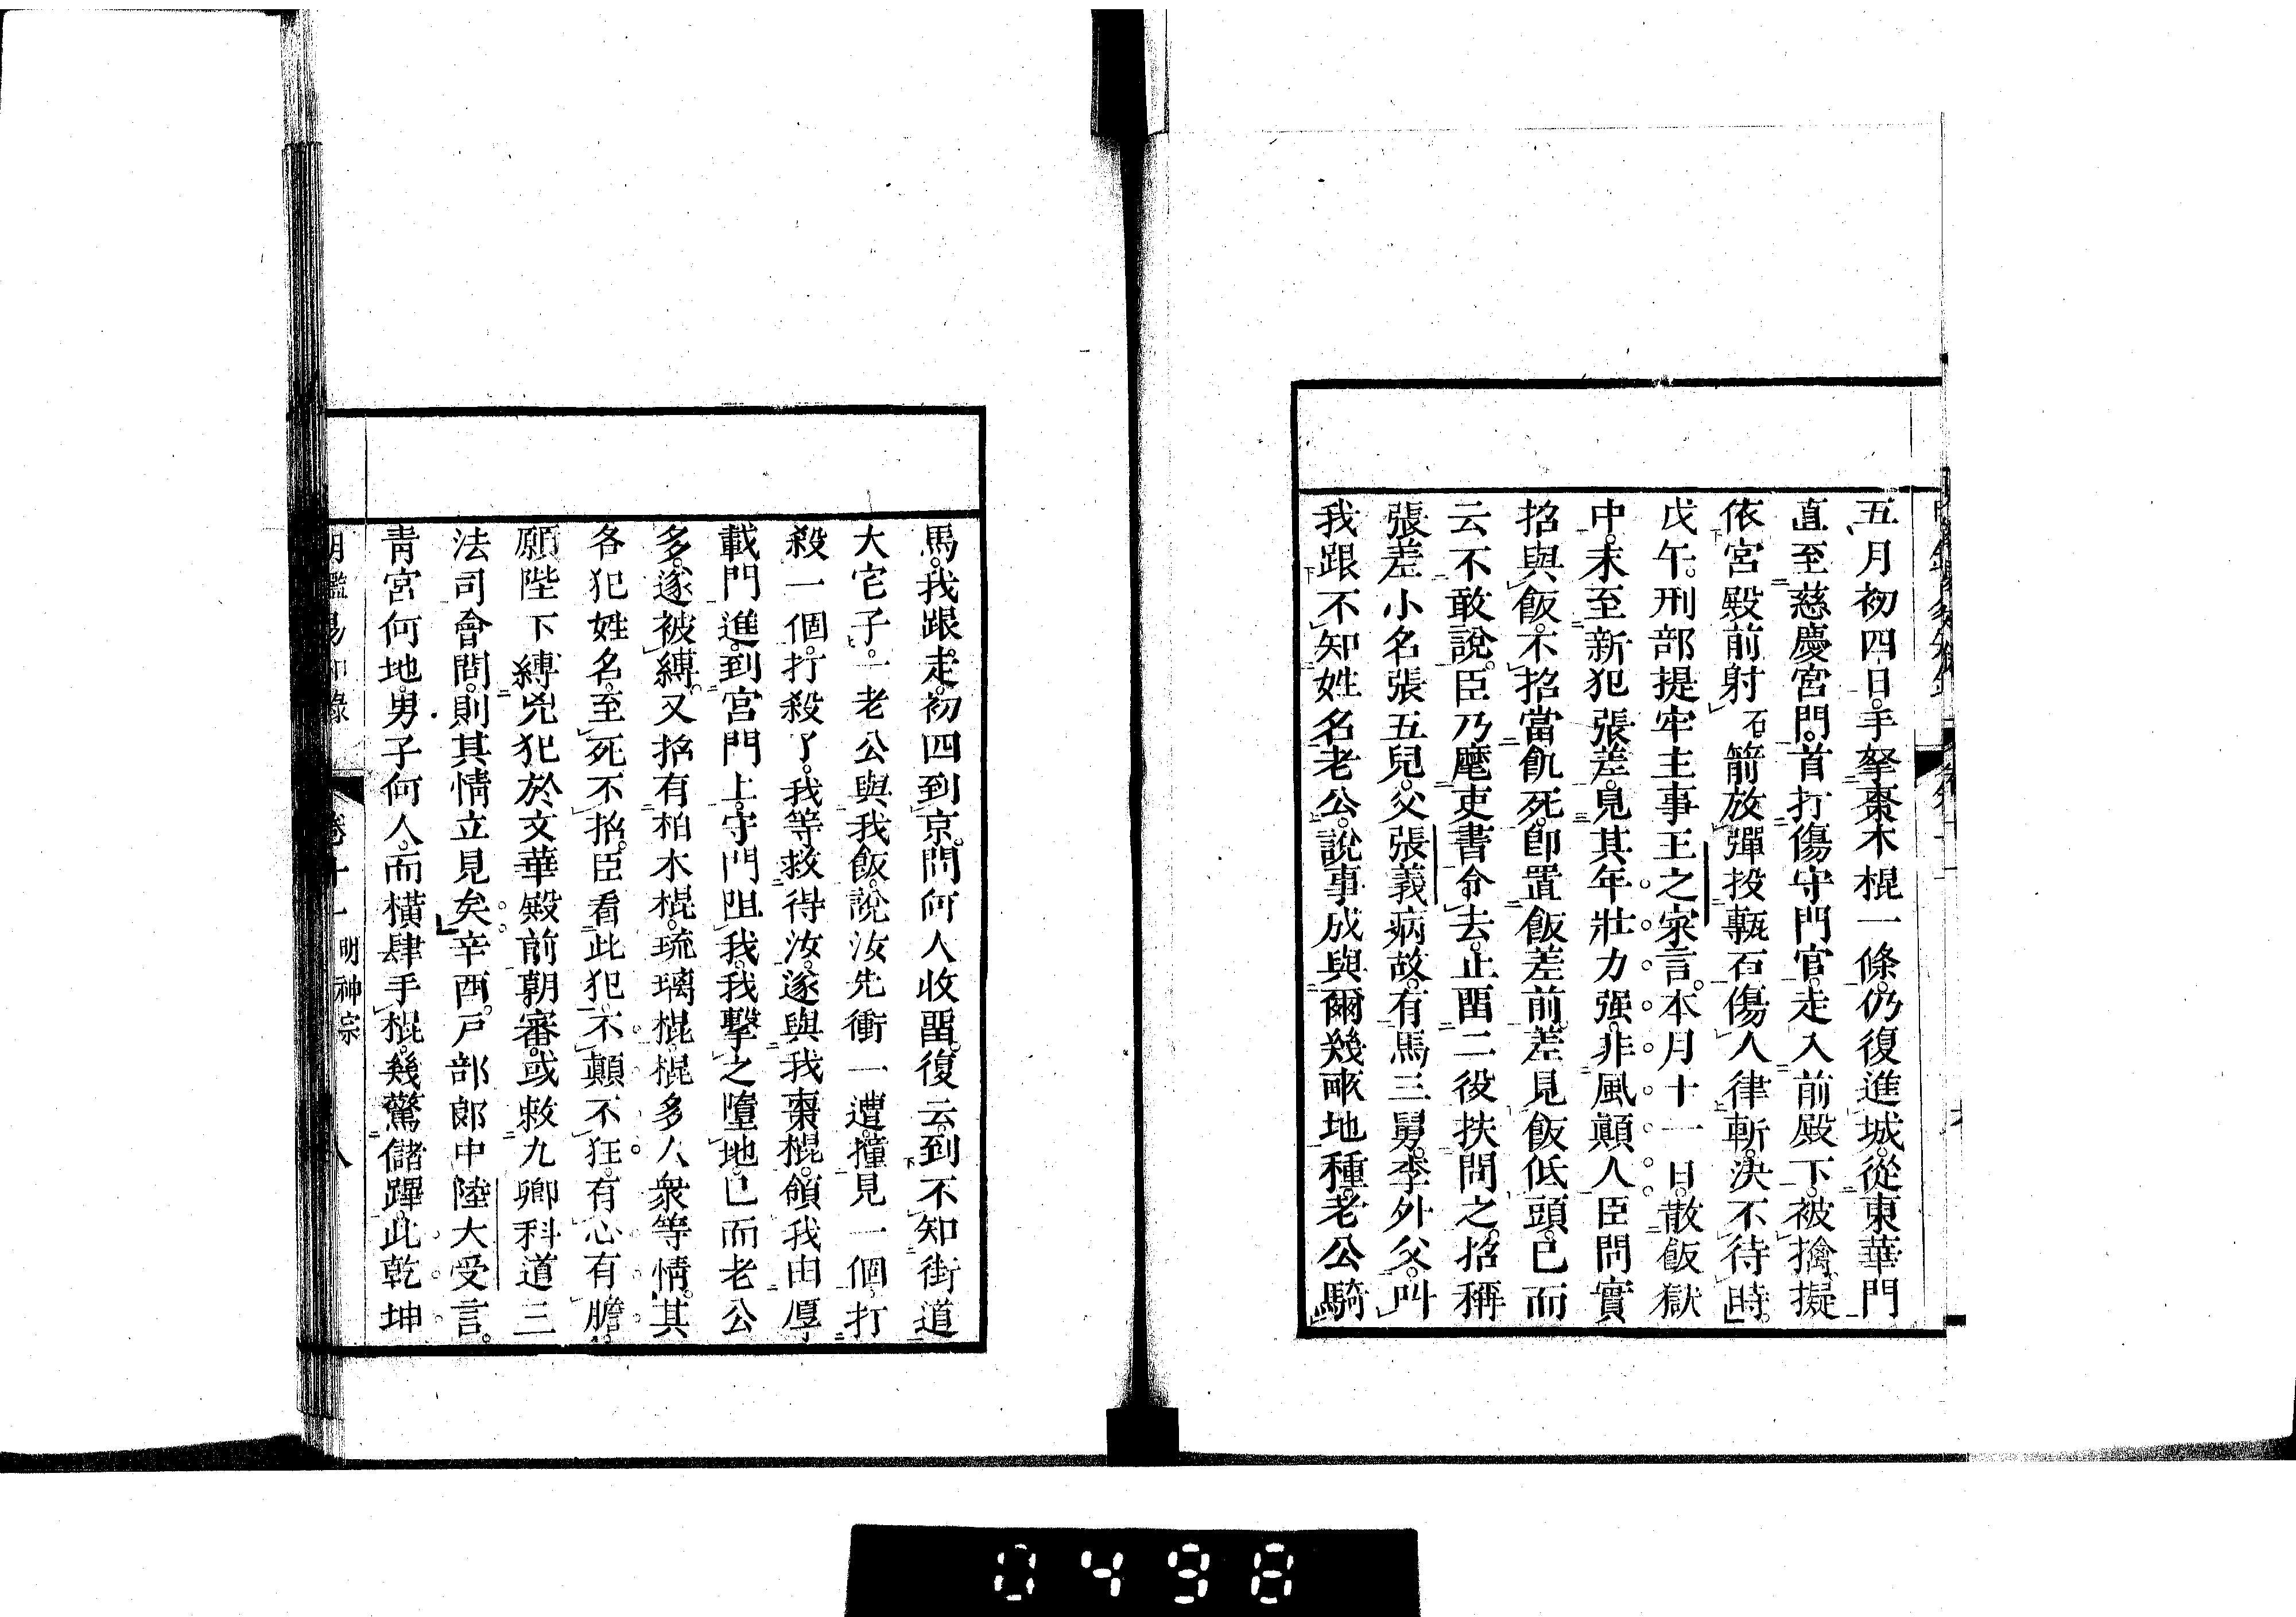 五月初四日手拏棗木棍一條仍復進城從東華門
直至慈慶宮門首打傷守門官走入前殿下被擒擬
依宮殿前射箭放彈投甎石傷人律斬決不待時
戊午刑部提牢主事王之寀言本月十一日散飯獄
中末至新犯張差見其年壯力强非風顛人臣問實
招與飯不招當飢死卽置飯差前差見飯低頭已而
云不敢說臣乃麾吏書令去止畱二役扶問之招稱
張差小名張五兒父張義病故有馬三舅李外父叫
我跟不知姓名老公說事成與爾幾畝地種老公騎
馬我跟走初四到京問何人收畱復云到不知街道
大宅子一老公與我飯說汝先衝一遭撞見一個打
殺一個打殺了我等救得汝遂與我棗棍領我由厚
載門進到宮門上守門阻我我擊之墮地已而老公
多遂被縛又招有柏木棍琉璃棍棍多人衆等情其
各犯姓名至死不招臣看此犯不顛不狂有心有膽
願陛下縛兇犯於文華殿前朝審或敕九卿科道三
法司會問則其情立見矣辛酉戸部郎中陸大受言
靑宮何地男子何人而橫肆手棍幾驚儲蹕此乾坤
明鑑易知錄 卷十一 明神宗 八
0498